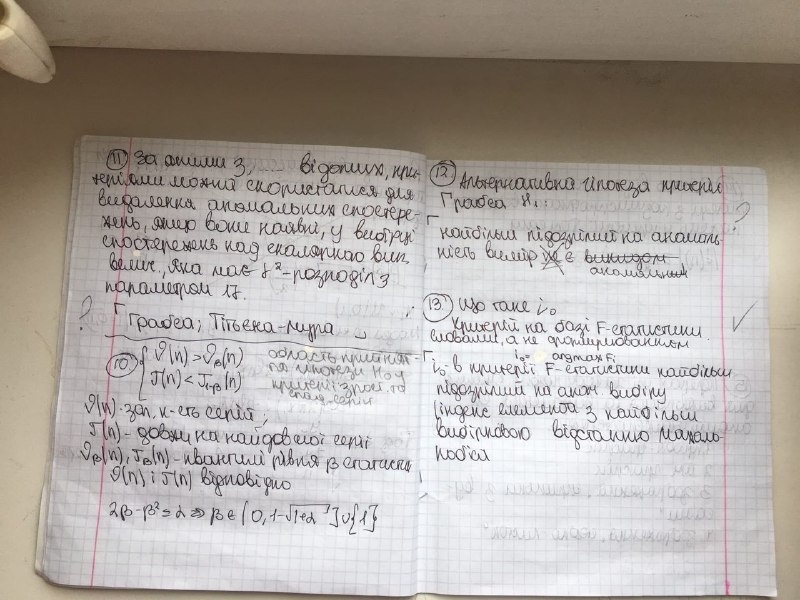 11 За якими з, відомих, кри-
теріями можна скористатися для
видалення аномальних спостере-
жень, якщо вони наявні, у вибірці
спостережень над скалярною вип.
велич., яка має χ²-розподіл з
параметром 17.
? Граббса; Тітьєна-Мура
10 { ϑ(n) > ϑβ(n) область прийнят-
τ(n) < τ1-β(n) тя гіпотези H0 у
критерії зрост. та
спад. серій
ϑ(n) - заг. к-сть серій;
τ(n) - довжина найдовшої серії
ϑβ(n), τβ(n) - квантилі рівня β статистик
ϑ(n) і τ(n) відповідно
2β-β² ≤ α ⇒ β ∈ [0, 1-√1+α] ∪ {1}
12 Альтернативна гіпотеза критерію
Граббса H1: ?
найбільш підозрілий на аномаль-
ність вимір є викидом
аномальним
13 Що таке i0
Критерій на базі F-статистики
словами, а не формулюванням
i0 = argmax Fi
i0 в критерії F-статистики найбільш
підозрілий на аном. виміру
(індекс елемента з найбільш
вибірковою відстанню Махала-
нобіса